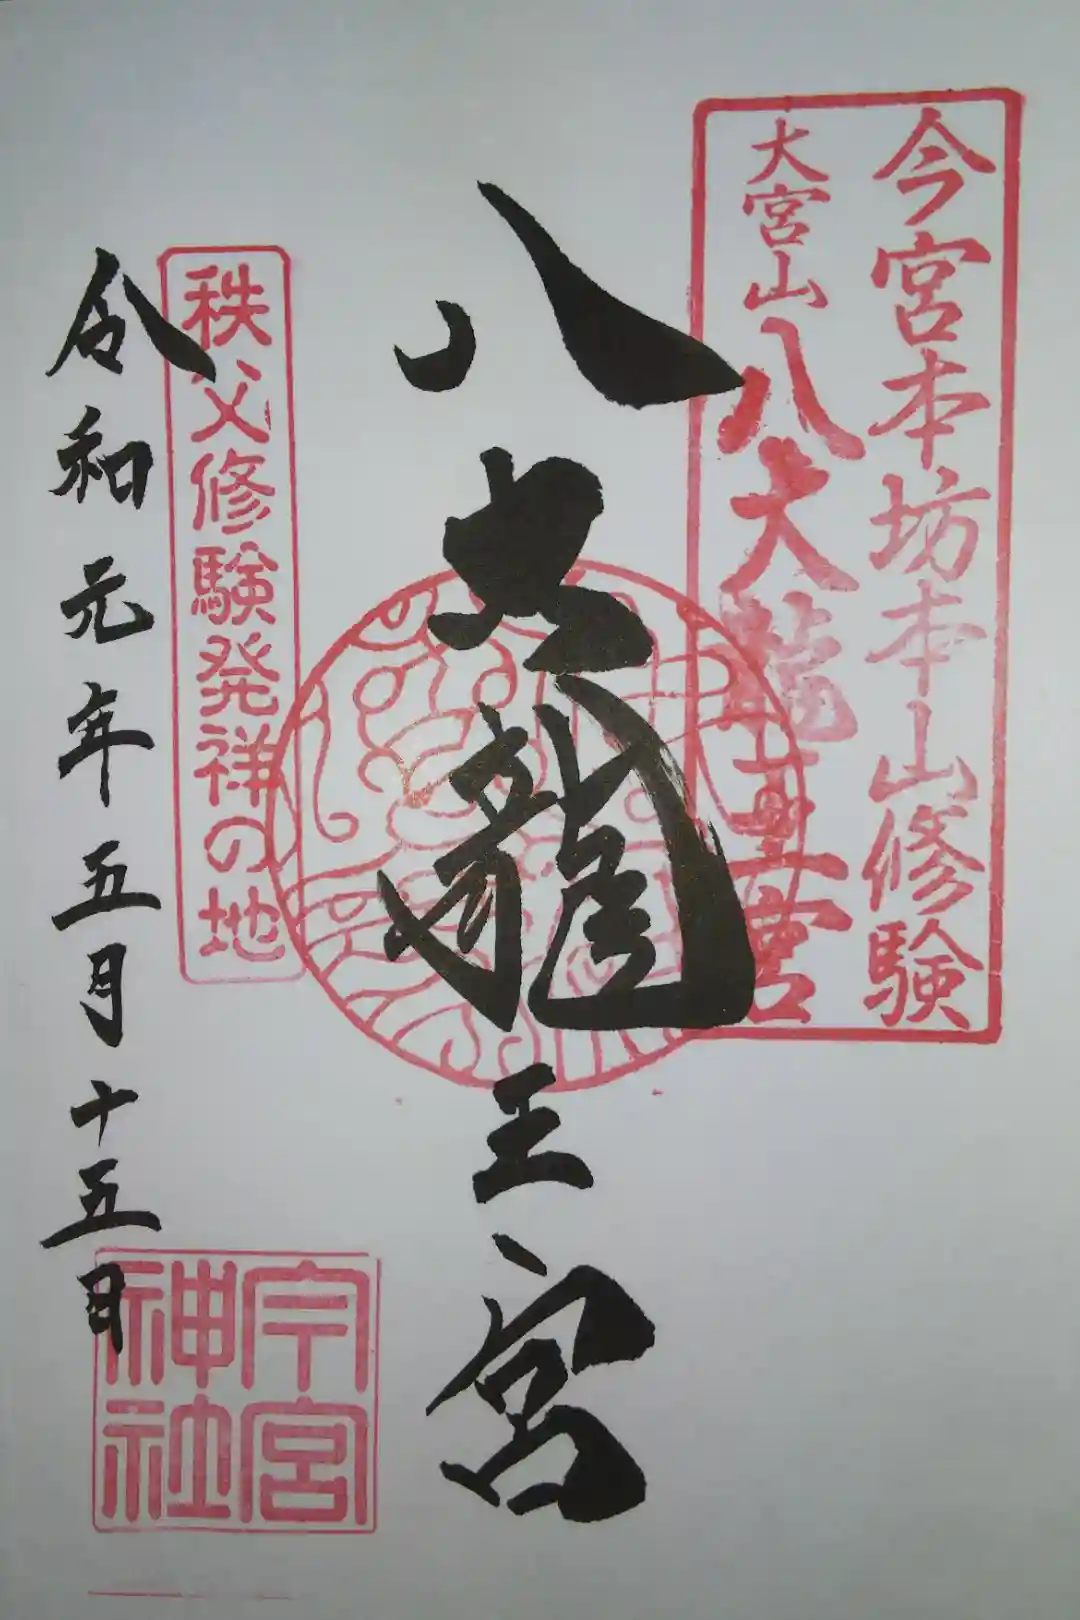 今宮本坊本山修験
大宮山八大龍王宮
八大龍王宮
秩父修験発祥の地
令和元年五月十五日
今宮
神社